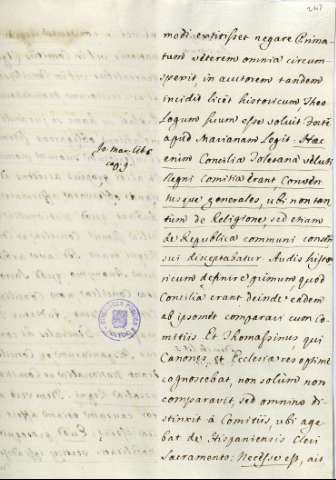 247
modi expetisset negare Prima
tum veterem omnia circum
spexit in autorem tandem
incidit licèt historicum, Theo
Logum suum esse voluit
apud Marianam Legit. Hæc
enim Concilia Toletana veluti
Regni Comitia erant, Conven
tusque generales, ubi non tan
tum de Religione, sed etiam
de Republica communi consen
sui disceptabatur. Audis histo
ricum definire primum, quod
Concilia erant deinde eadem
ab ipsomet comparari cum Co
mitiis. Et Thomassinus qui
Canones, et Ecclesiæ res optime
cognoscebat, non solùm non
comparavit, sed omnino di
stinxit à Comitiis, ubi age
bat de Hispaniensis Cleri
Sacramento: Necesse est, ait
Jo. Mar. lib. 6
cap. 9